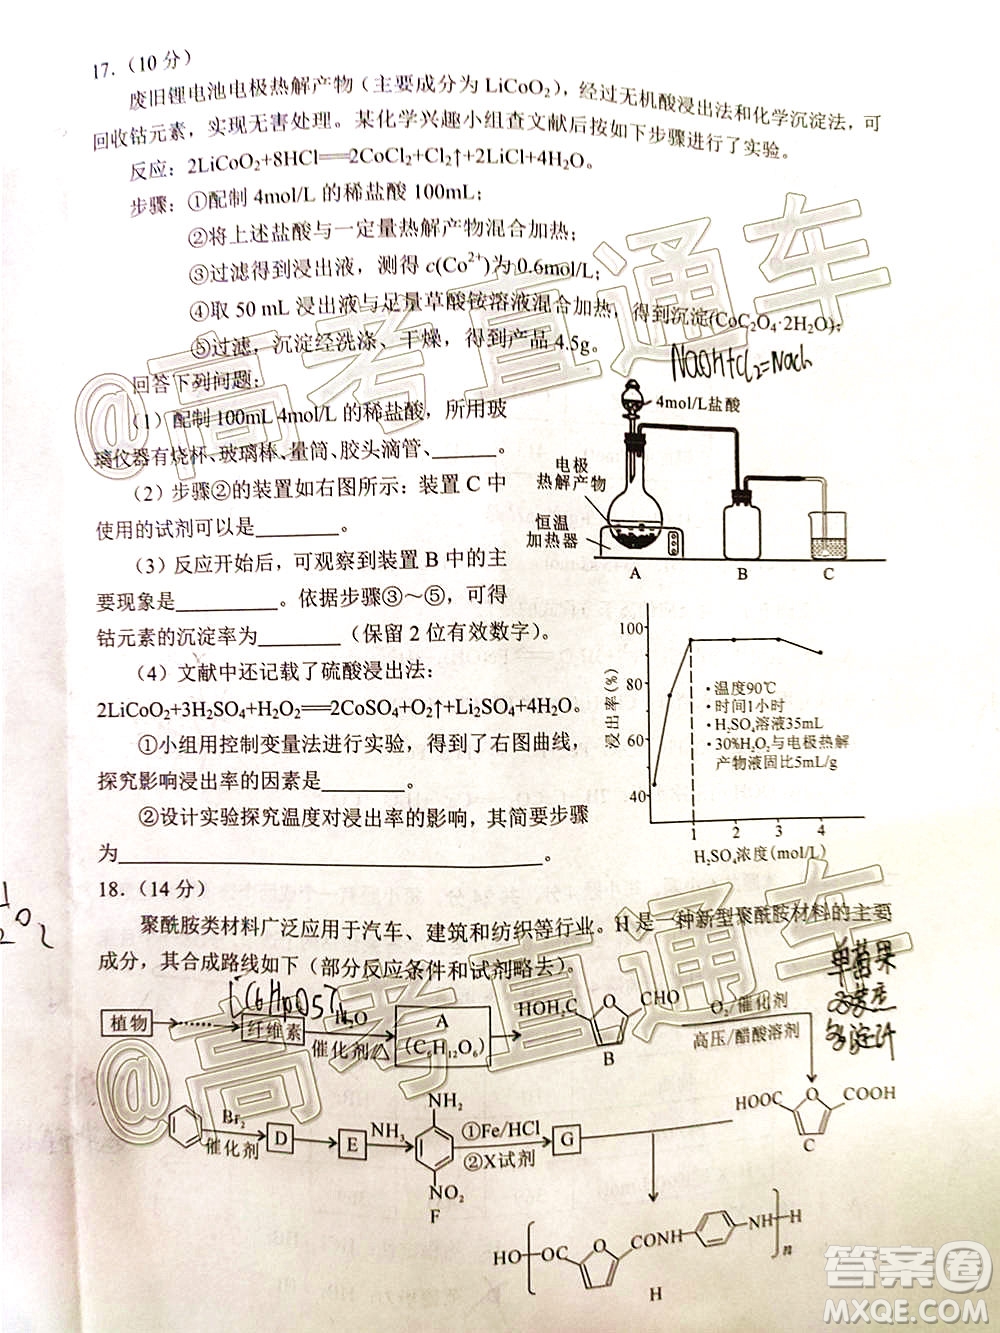 17.（10 分）
废旧锂电池电极热解产物（主要成分为 LiCoO₂），经过无机酸浸出法和化学沉淀法，可
回收钴元素，实现无害处理。某化学兴趣小组查文献后按如下步骤进行了实验。
反应：2LiCoO₂+8HCl══2CoCl₂+Cl₂↑+2LiCl+4H₂O。
步骤：①配制 4mol/L 的稀盐酸 100mL；
②将上述盐酸与一定量热解产物混合加热；
③过滤得到浸出液，测得 c(Co²⁺)为 0.6mol/L；
④取 50 mL 浸出液与足量草酸铵溶液混合加热，得到沉淀(CoC₂O₄·2H₂O)；
⑤过滤，沉淀经洗涤、干燥，得到产品 4.5g。
回答下列问题：
（1）配制 100mL 4mol/L 的稀盐酸，所用玻
璃仪器有烧杯、玻璃棒、量筒、胶头滴管、______。
（2）步骤②的装置如右图所示：装置 C 中
使用的试剂可以是________。
（3）反应开始后，可观察到装置 B 中的主
要现象是________。依据步骤③～⑤，可得
钴元素的沉淀率为________（保留 2 位有效数字）。
（4）文献中还记载了硫酸浸出法：
2LiCoO₂+3H₂SO₄+H₂O₂══2CoSO₄+O₂↑+Li₂SO₄+4H₂O。
①小组用控制变量法进行实验，得到了右图曲线，
探究影响浸出率的因素是________。
②设计实验探究温度对浸出率的影响，其简要步骤
为________________。
4mol/L盐酸
电极
热解产物
恒温
加热器
A
B
C
浸出率(%)
100
80
60
40
•温度90℃
•时间1小时
•H₂SO₄溶液35mL
•30%H₂O₂与电极热解
产物液固比5mL/g
1 2 3 4
H₂SO₄浓度(mol/L)
18.（14 分）
聚酰胺类材料广泛应用于汽车、建筑和纺织等行业。H 是一种新型聚酰胺材料的主要
成分，其合成路线如下（部分反应条件和试剂略去）。
植物
纤维素
H₂O
催化剂△
A
(C₆H₁₂O₆)
HOH₂C O CHO
B
O₂/催化剂
高压/醋酸溶剂
HOOC O COOH
C
Br₂
催化剂
D
E
NH₃
NH₂
NO₂
F
①Fe/HCl
②X试剂
G
HO OC O CONH NH H n
H
@高考直通车
@高考直通车
答案圈
MXQE.COM